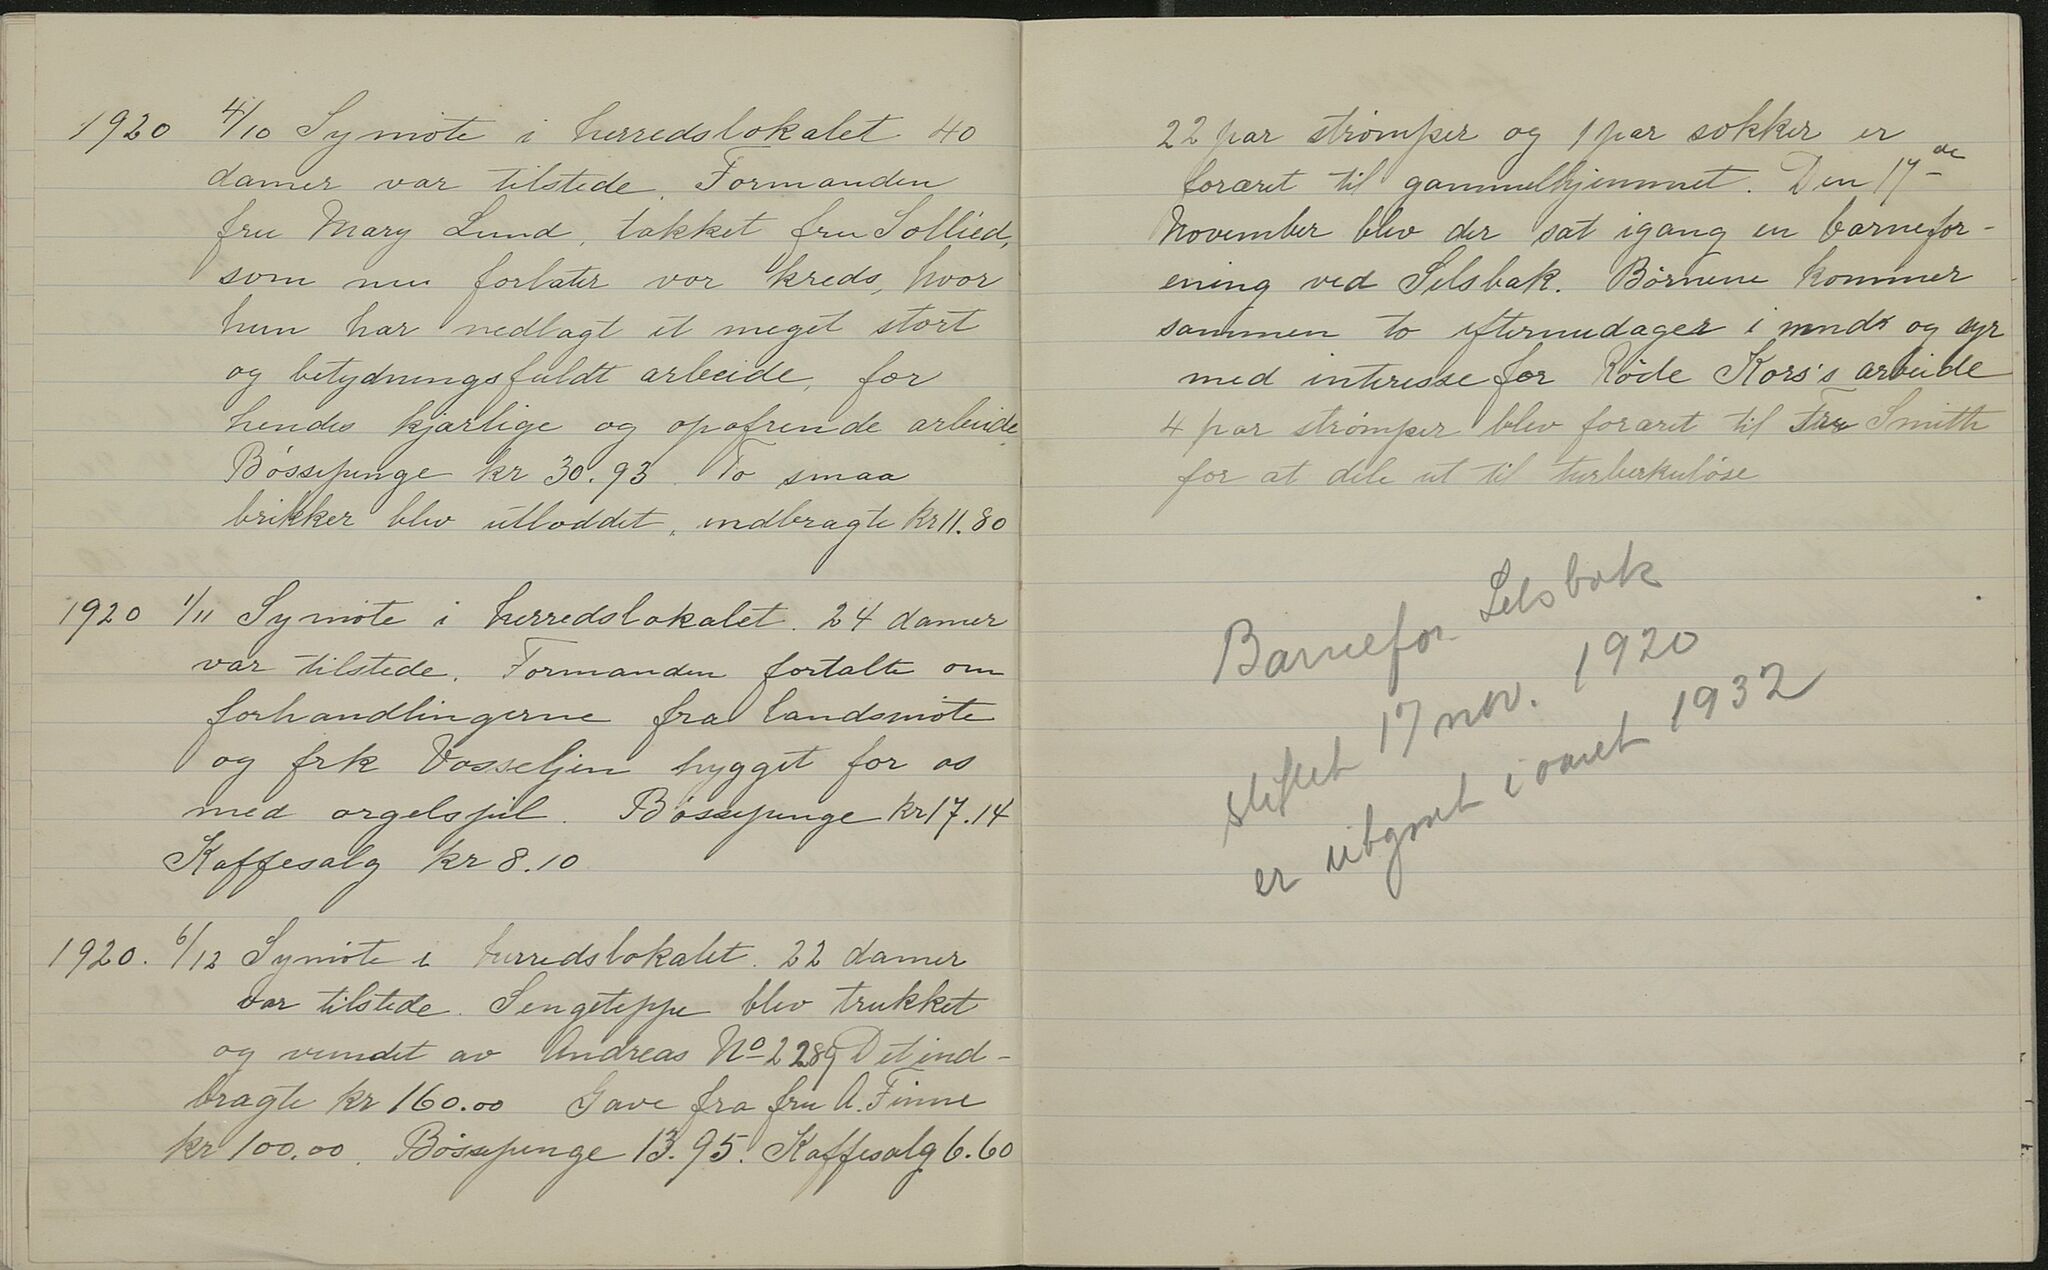 1920 4/10 Symøte i herredslokalet. 40
damer var tilstede. Formanden
fru Mary Lund, takket fru Sollied,
som nu forlater vor kreds, hvor
hun har nedlagt et meget stort
og betydningsfuldt arbeide, for
hendes kjærlige og opofrende arbeide.
Bøssepenge kr 30.93. To smaa
brikker blev utloddet, indbragte kr 11.80
1920 1/11 Symøte i herredslokalet. 24 damer
var tilstede. Formanden fortalte om
forhandlingerne fra landsmøte
og frk Vasseljen hygget for os
med orgelspil. Bøssepenge kr 17.14
Kaffesalg kr 8.10
1920. 6/12 Symøte i herredslokalet. 22 damer
var tilstede. Sengeteppe blev trukket
og vundet av Andreas No 2289 Det ind-
bragte kr 160.00 Gave fra fru A. Finne
kr 100.00. Bøssepenge 13.95. Kaffesalg 6.60
22 par strømper og 1 par sokker er
foræret til gammelhjemmet. Den 17de
November blev der sat igang en barnefor-
ening ved Selsbak. Børnene kommer
sammen to eftermedager i mndr og syr
med interesse for Røde Kors's arbeide
4 par strømper blev foræret til Fru Smith
for at dele ut til turberkuløse
Barnefor. Selsbak
stiftet 17 nov. 1920
er utgaat i aaret 1932